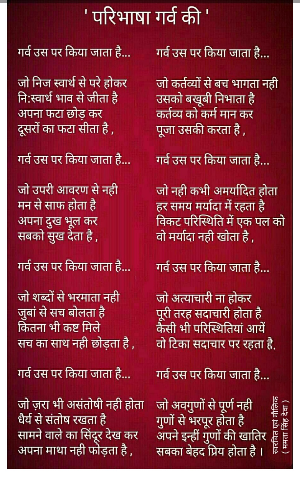 ' परिभाषा गर्व की '
गर्व उस पर किया जाता है...
जो निज स्वार्थ से परे होकर
नि:स्वार्थ भाव से जीता है
अपना फटा छोड़ कर
दूसरों का फटा सीता है ,
गर्व उस पर किया जाता है...
जो उपरी आवरण से नही
मन से साफ होता है
अपना दुख भूल कर
सबको सुख देता है ,
गर्व उस पर किया जाता है...
जो शब्दों से भरमाता नही
जुबां से सच बोलता है
कितना भी कष्ट मिले
सच का साथ नही छोड़ता है ,
गर्व उस पर किया जाता है...
जो ज़रा भी असंतोषी नही होता
धैर्य से संतोष रखता है
सामने वाले का सिंदूर देख कर
अपना माथा नही फोड़ता है ,
गर्व उस पर किया जाता है...
जो कर्तव्यों से बच भागता नही
उसको बखूबी निभाता है
कर्तव्य को कर्म मान कर
पूजा उसकी करता है ,
गर्व उस पर किया जाता है...
जो नही कभी अमर्यादित होता
हर समय मर्यादा में रहता है
विकट परिस्थिति में एक पल को
वो मर्यादा नही खोता है ,
गर्व उस पर किया जाता है...
जो अत्याचारी ना होकर
पूरी तरह सदाचारी होता है
कैसी भी परिस्थितियां आयें
वो टिका सदाचार पर रहता है.
गर्व उस पर किया जाता है...
जो अवगुणों से पूर्ण नही
गुणों से भरपूर होता है
अपने इन्हीं गुणों की खातिर
सबका बेहद प्रिय होता है ।
स्वरचित एवं मौलिक
( ममता सिंह देवा )